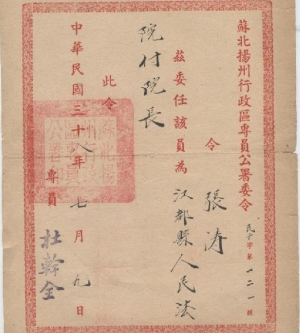 蘇北揚州行政區專員公署委令
民字第一二一號
令
張涛
茲委任該員為江都縣人民法
院付院長
此令
中華民國三十八年七月九日
專員
杜幹全